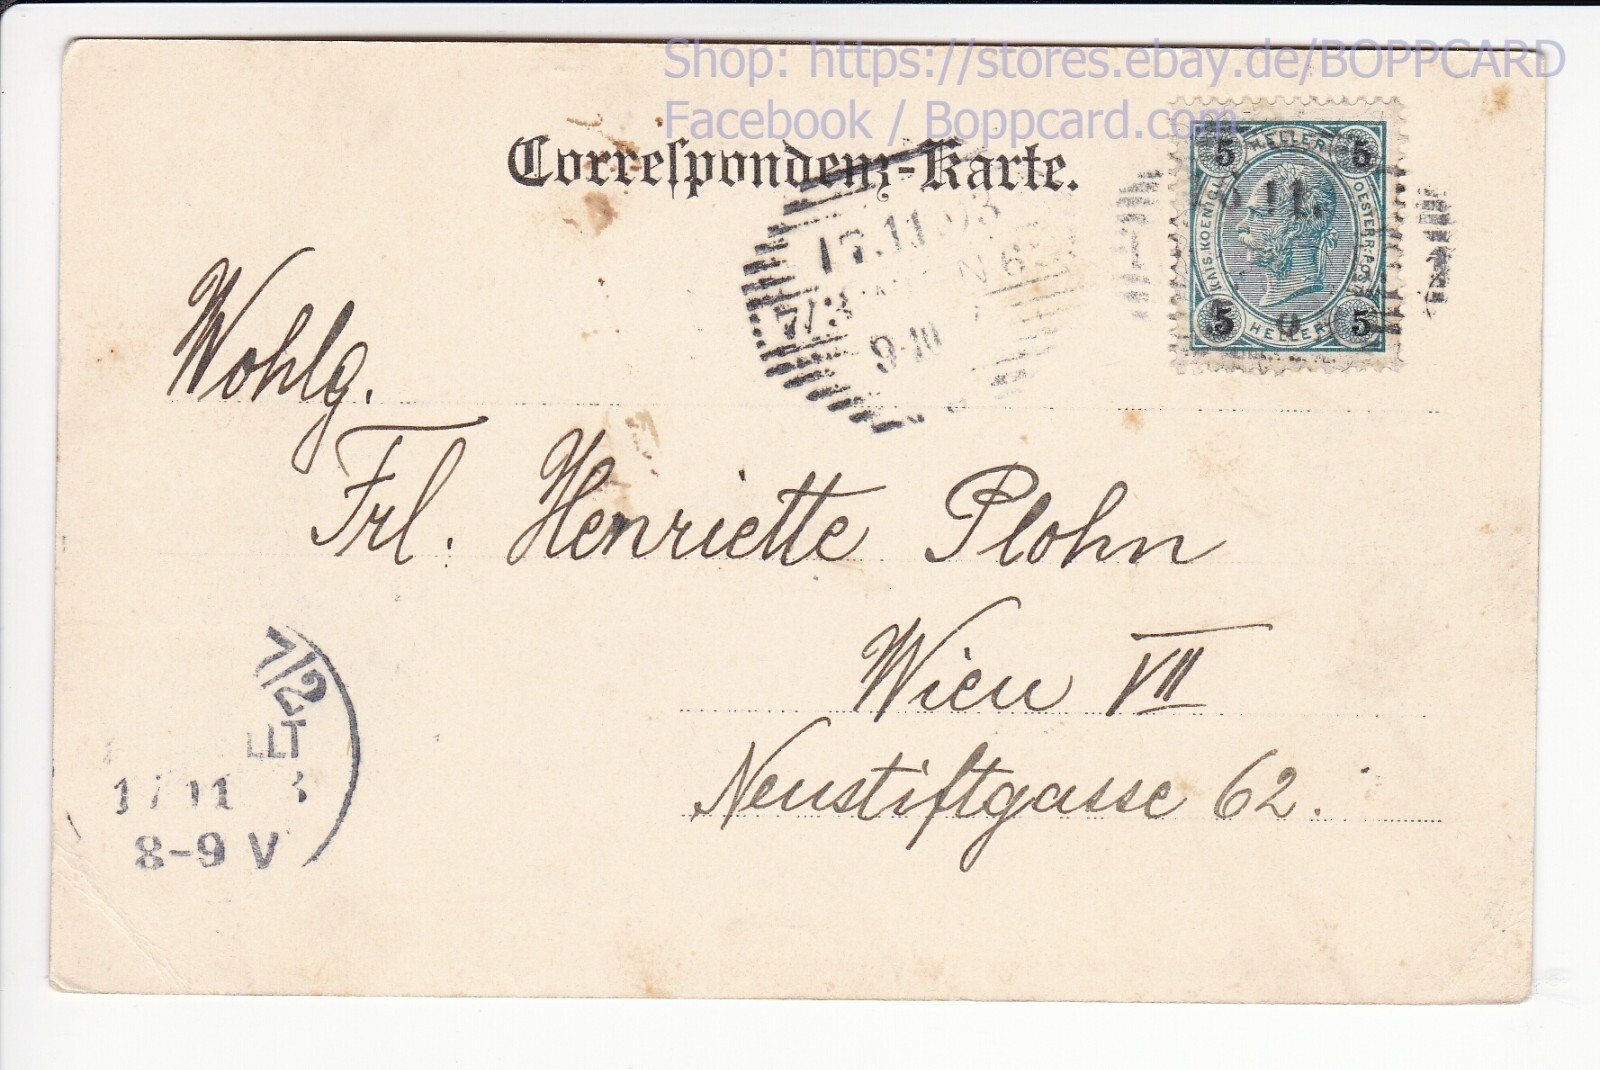 Shop: https://stores.ebay.de/BOPPCARD
Facebook / Boppcard.com
Correſpondenz-Karte.
5 HELLER 5
KAIS. KOENIGL. OESTERR. POST
5 HELLER 5
17.11.03
7/3
9-10
Wohlg.
Frl. Henriette Plohn
Wien VII
Neustiftgasse 62.
7/2
LLT
17 11 3
8-9 V